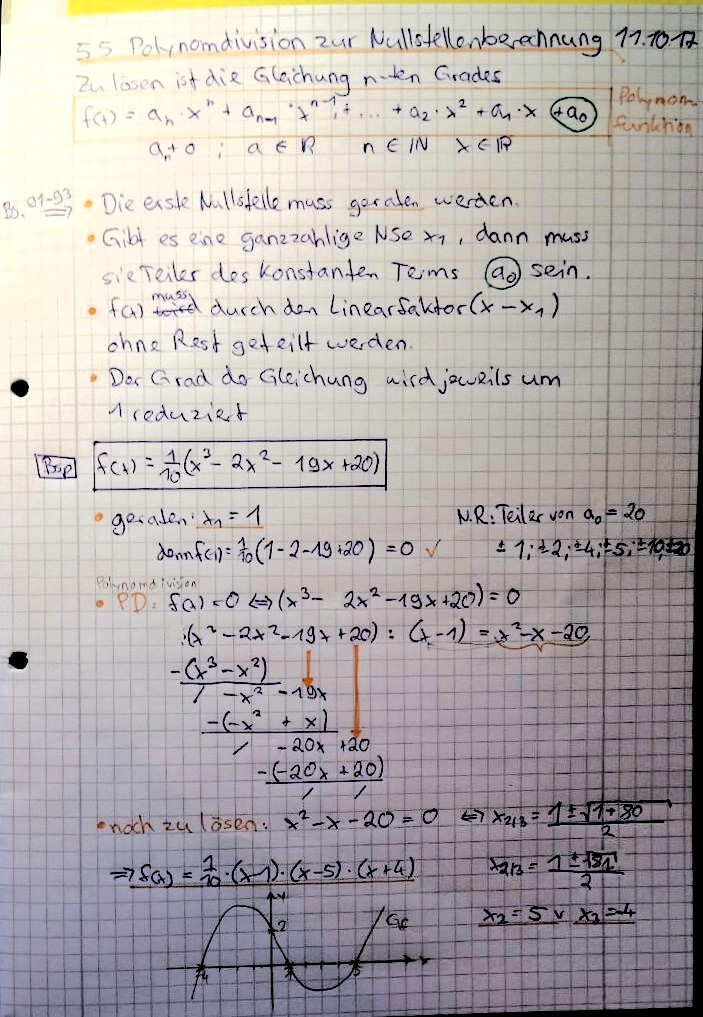 5.5 Polynomdivision zur Nullstellenberechnung 11.10.17
Zu lösen ist die Gleichung n-ten Grades
f(x) = aₙ · xⁿ + aₙ₋₁ · xⁿ⁻¹ + ... + a₂ · x² + a₁ · x + a₀
Polynom-
funktion
aₙ ≠ 0 ; a ∈ ℝ n ∈ ℕ x ∈ ℝ
Bs. 91-93 ⇒ • Die erste Nullstelle muss geraten werden.
• Gibt es eine ganzzahlige NSe x₁, dann muss
sie Teiler des konstanten Terms a₀ sein.
• f(x) muss durch den Linearfaktor (x - x₁)
ohne Rest geteilt werden.
• Der Grad der Gleichung wird jeweils um
1 reduziert
Bsp f(x) = 1/10 (x³ - 2x² - 19x + 20)
• geraten: x₁ = 1
N.R.: Teiler von a₀ = 20
dann f(1) = 1/10 (1 - 2 - 19 + 20) = 0 ✓
± 1; ± 2; ± 4; ± 5; ± 10; ± 20
Polynomdivision
• PD: f(x) = 0 ⇔ (x³ - 2x² - 19x + 20) = 0
(x³ - 2x² - 19x + 20) : (x - 1) = x² - x - 20
-(x³ - x²)
/ -x² - 19x
-(-x² + x)
/ - 20x + 20
-(-20x + 20)
/ /
• noch zu lösen: x² - x - 20 = 0 ⇔ x₂/₃ = (1 ± √(1 + 80))/2
⇒ f(x) = 1/10 · (x - 1) · (x - 5) · (x + 4)
x₂/₃ = (1 ± √81)/2
x₂ = 5 ∨ x₃ = -4
y
2
Gf
-4 1 5 x